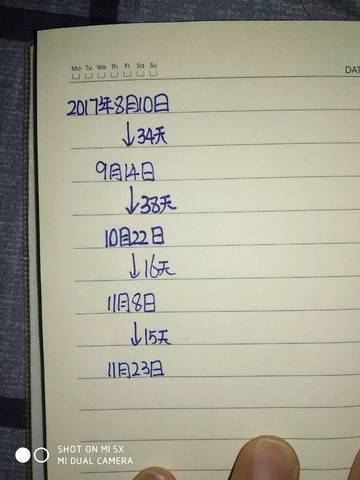 Mo Tu We Th Fr Sa Su
DAT
2017年8月10日
↓34天
9月14日
↓38天
10月22日
↓16天
11月8日
↓15天
11月23日
SHOT ON MI 5X
MI DUAL CAMERA